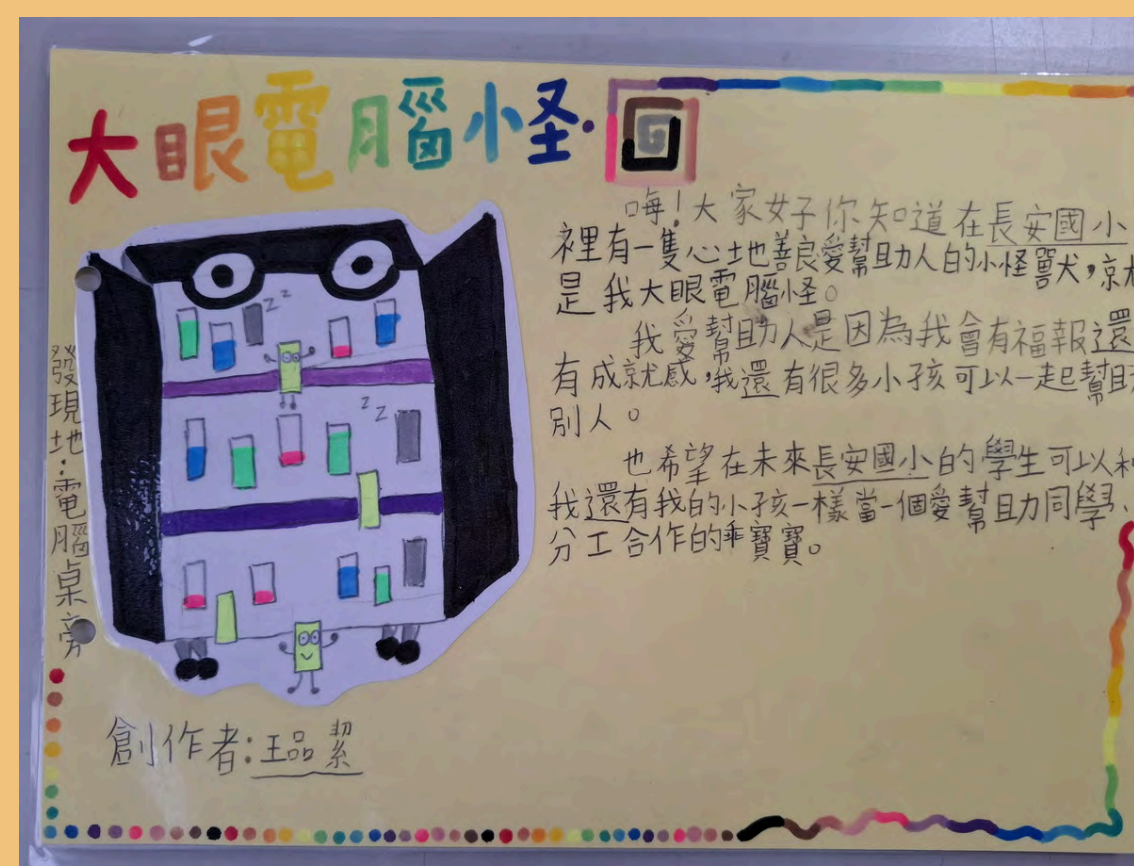 大眼電腦怪
嗨！大家好你知道在長安國小
裡有一隻心地善良愛幫助人的小怪獸，就
是我大眼電腦怪。
我愛幫助人是因為我會有福報還
有成就感，我還有很多小孩可以一起幫
別人。
也希望在未來長安國小的學生可以和
我還有我的小孩一樣當一個愛幫助同學、
分工合作的乖寶寶。
發現地：電腦桌旁
z z
z z
創作者：王品絜